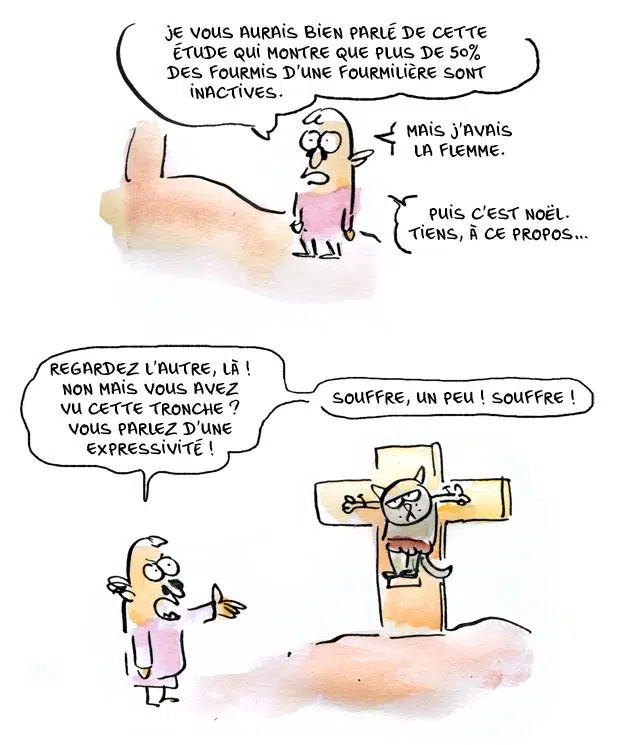 JE VOUS AURAIS BIEN PARLÉ DE CETTE
ÉTUDE QUI MONTRE QUE PLUS DE 50%
DES FOURMIS D'UNE FOURMILIÈRE SONT
INACTIVES.
MAIS J'AVAIS
LA FLEMME.
PUIS C'EST NOËL.
TIENS, À CE PROPOS...
REGARDEZ L'AUTRE, LÀ !
NON MAIS VOUS AVEZ
VU CETTE TRONCHE ?
VOUS PARLEZ D'UNE
EXPRESSIVITÉ !
SOUFFRE, UN PEU ! SOUFFRE !